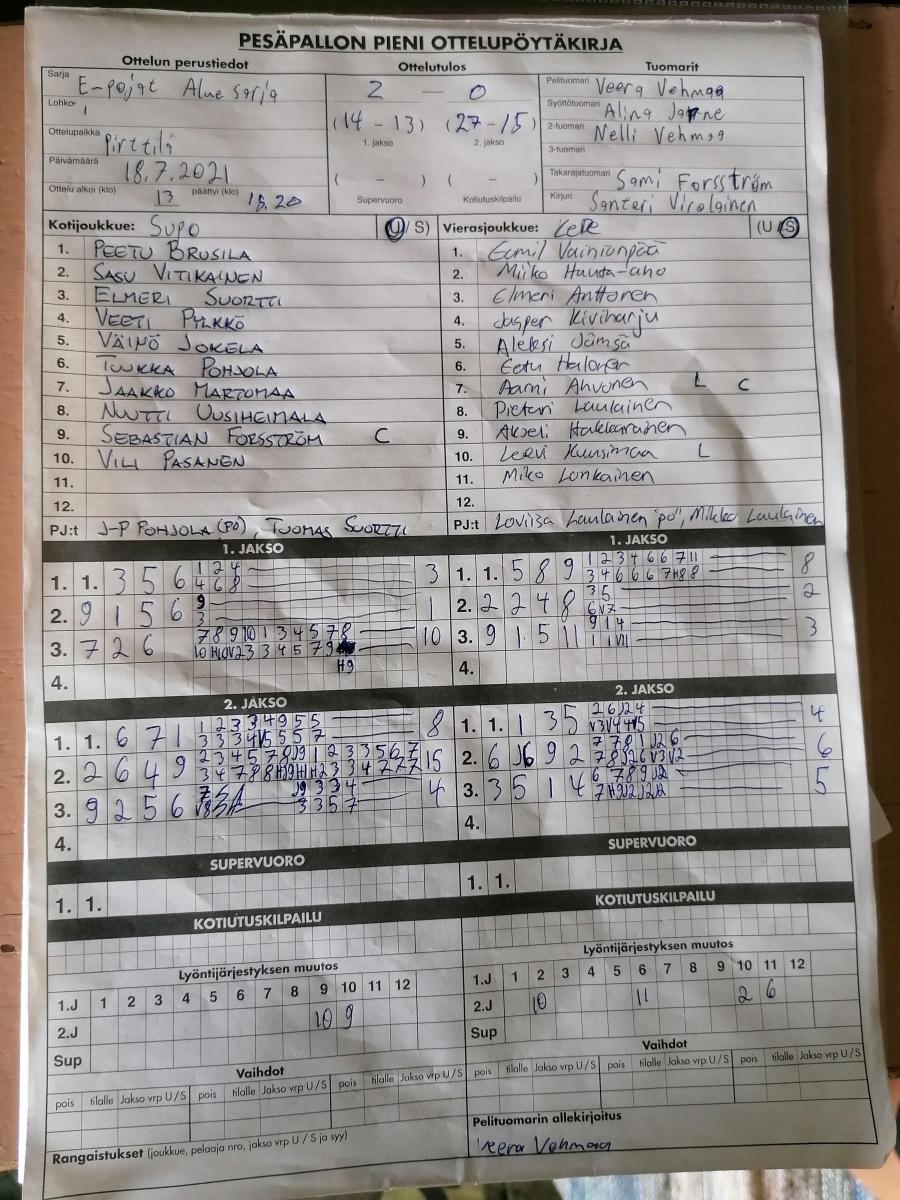 PESÄPALLON PIENI OTTELUPÖYTÄKIRJA
Ottelun perustiedot
Sarja E-pojat Aluesarja
Lohko 1
Ottelupaikka Pirttilä
Päivämäärä 18.7.2021
Ottelu alkoi (klo) 13 päättyi (klo) 15.20
Ottelutulos
2 — 0
(14 - 13) (27 - 15)
1. jakso 2. jakso
( - ) ( - )
Supervuoro Kotiutuskilpailu
Tuomarit
Pelituomari Veera Vehmaa
Syöttötuomari Alina
2-tuomari Nelli Vehmaa
3-tuomari
Takarajatuomari Sami Forsström
Kirjuri Santeri Virolainen
Kotijoukkue: SuPo (U/S)
1. PEETU BRUSILA
2. SASU VITIKAINEN
3. ELMERI SUORTTI
4. VEETI PYLKKÖ
5. VÄINÖ JOKELA
6. TUUKKA POHJOLA
7. JAAKKO MARTOMAA
8. NUUTTI UUSIHEIMALA
9. SEBASTIAN FORSSTRÖM C
10. VILI PASANEN
11.
12.
PJ:t J-P POHJOLA (PÖ), TUOMAS SUORTTI
Vierasjoukkue: LePe (U/S)
1. Eemil Vainionpää
2. Miiko Hauta-aho
3. Elmeri Anttonen
4. Jasper Kiviharju
5. Aleksi Jämsä
6. Eetu Halonen
7. Aarni Ahvonen L C
8. Pietari Laulainen
9. Akseli Hakkarainen
10. Leevi Kuusimaa L
11. Miko Lonkainen
12.
PJ:t Loviisa Laulainen "pö", Mikko Laulainen
1. JAKSO
1. 1. 3 5 6 1 2 4 3
4 6 8
2. 9 1 5 6 9 1
3
3. 7 2 6 7 8 9 10 1 3 4 5 7 8 10
H9
4.
1. JAKSO
1. 1. 5 8 9 1 2 3 4 6 6 7 11 8
3 4 6 6 6 7 H8 8
2. 2 2 4 8 3 5 2
6 V7
3. 9 1 5 11 9 1 4 3
4.
2. JAKSO
1. 1. 6 7 1 1 2 3 3 4 9 5 5 8
2. 2 6 4 9 15
3. 9 2 5 6 4
3 3 5 7
4.
2. JAKSO
1. 1. 1 3 5 2 6 J2 4 4
2. 6 J6 9 2 7 7 8 1 J2 6 6
3. 3 5 1 4 6 7 8 9 J2 5
4.
SUPERVUORO
1. 1.
SUPERVUORO
1. 1.
KOTIUTUSKILPAILU
KOTIUTUSKILPAILU
Lyöntijärjestyksen muutos
1.J 1 2 3 4 5 6 7 8 9 10 11 12
2.J 10 9
Sup
Lyöntijärjestyksen muutos
1.J 1 2 3 4 5 6 7 8 9 10 11 12
2.J 10 11 2 6
Sup
Vaihdot
pois tilalle Jakso vrp U/S pois tilalle Jakso vrp U/S pois tilalle Jakso vrp U/S
Vaihdot
pois tilalle Jakso vrp U/S pois tilalle Jakso vrp U/S pois tilalle Jakso vrp U/S
Rangaistukset (joukkue, pelaaja nro, jakso vrp U/S ja syy)
Pelituomarin allekirjoitus
Veera Vehmaa